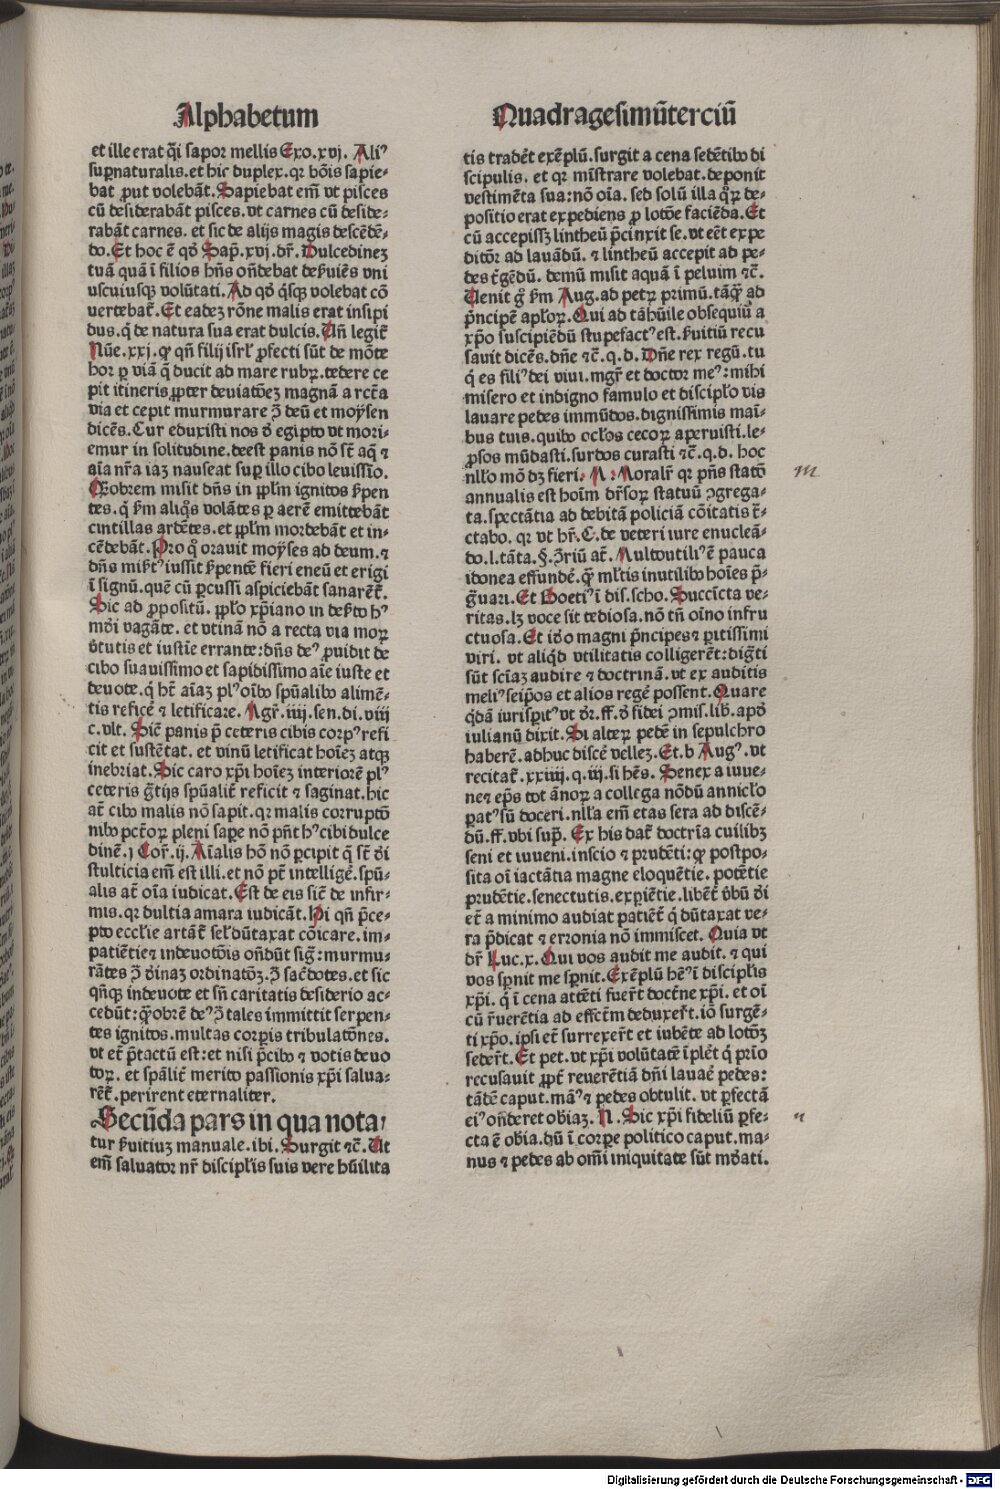 Alphabetum
et ille erat q̄i sapor mellis Exo.xvj. Aliꝰ
suꝑnaturalis.et hic duplex.qꝛ bōis sapie⸗
bat ꝓut volebāt.Sapiebat em̄ vt pisces
cū desiderabāt pisces.vt carnes cū deside⸗
rabāt carnes. et sic de alijs magis descēdē⸗
do.Et hoc ē qđ Sap̄.xvj.dr̄. Dulcedinez
tuā quā ī filios hn̄s on̄debat de
uscuiusqꝫ volūtati.Ad qđ q̄sqꝫ volebat cō
uertebat̄.Et eadeꝫ rōne malis erat insipi
dus.q̇ de natura sua erat dulcis.Un̄ legit̄
Nūe.xxj.ꝙ qn̄ filij isrl̄ ꝓfecti sūt de mōte
hor ꝑ viā q̄ ducit ad mare rubꝝ.tedere ce
pit itineris ꝓpter magnā
via et cepit murmurare ꝯ̄ deū et moẏsen
dicēs.Cur eduxisti nos đ egipto vt mori⸗
emur in solitudine.deest panis nō st̄ aq̄ ⁊
aīa nr̄a iaꝫ nauseat suꝑ illo cibo leuissīo.
Qđobrem misit dn̄s in ꝓpl̄m ignitos
tes.q̇ ẜm aliq̊s volātes ꝑ aerē emittebāt
cintillas ardētes.et ꝓpl̄m mordebāt et in⸗
cēdebāt.Pro q̊ orauit moẏses ad deum.⁊
dn̄s iussit fieri eneū et erigi
ī signū.quē cū ꝑcussi aspiciebāt sanarēt̄.
Sic ad ꝓpositū. ꝓpl̄o xp̄iano in hꝰ
mo̅i vagāte. et vtinā nō a recta via moꝝ
v̄tutis et iustīe errante:dn̄s deꝰ ꝓuidit de
cibo suauissimo et sapidissimo aīe iuste et
deuote.q̇ hr̄ aīaꝫ plꝰ oībꝰ spūalibꝰ alimē⸗
tis reficē ⁊ letificare. Mgr̄.iiij.sen.di.viij
c.vlt. Sic̄ panis p̄ ceteris cibis corpꝰ refi
cit et sustētat. et vinū letificat hoīeꝫ atqꝫ
inebriat.Sic caro xp̄i hoīeꝫ interiorē plꝰ
ceteris gr̄tijs spūalit̄ reficit ⁊ saginat.hic
at̄ cibꝰ malis nō sapit.qꝛ malis corruptꝰ
nibꝰ pct̄oꝝ pleni saꝑe nō pn̄t hꝰ cibi dulce
dinē.j Cor̄.ij. Aīalis hō nō ꝑcipit q̄ st̄ đi
stulticia em̄ est illi.et nō pt̄ intelligē.spū⸗
alis at̄ oīa iudicat.Est de eis sic̄ de infir⸗
mis.qꝛ dultia amara iudicāt.Hi qn̄ p̄ce⸗
pto eccl̄ie artāt̄ sel̄ dūtaxat cōicare.im⸗
patiētie⁊ indeuotōis on̄dūt sig̃:murmu⸗
rātes ꝯ̄ đinaꝫ ordinatōꝫ.ꝯ̄ sac̄dotes.et sic
qn̄qꝫ indeuote et sn̄ caritatis desiderio ac⸗
cedūt:q̄obrē deꝰ ꝯ̄ tales immittit serpen⸗
tes ignitos.multas corꝑis tribulatōnes.
vt et̄ p̄tactū est:et nisi p̄cibꝰ ⁊ votis deuo
toꝝ. et spālit̄ merito passionis xp̄i salua⸗
rēt̄.perirent eternaliter.
Secūda pars in qua nota⸗
tur manuale.ibi.Surgit ⁊c̄.Ut
em̄ saluator nr̄ discipl̄is suis vere hūilita
Quadragesimūterciū
tis traderet exēplū.surgit a cena sedētibꝰ di
scipulis. et qꝛ mīstrare volebat.deponit
vestimēta sua:nō oīa. sed solū illa q̊ꝝ de⸗
positio erat expediens ꝓ lotōe faciēda.Et
cū accepissꝫ lintheū p̄cinxit se.vt eēt expe
ditꝰ ad lauādū. ⁊ lintheū accepit ad pe⸗
des t̄gēdū. demū misit aquā ī peluim ⁊c̄.
Uenit g̊ ẜm Aug.ad petꝝ primū.tāq̄ ad
p̄ncipē apl̄oꝝ.Qui ad tāhūile obsequiū a
xp̄o suscipiēdū stupefactꝰ est. recu
sauit dicēs.dn̄e ⁊c̄.q.d. Dn̄e rex regū.tu
q̇ es filiꝰ dei viui.mgr̄ et doctor meꝰ:mihi
misero et indigno famulo et discipl̄o vis
lauare pedes immūdos.dignissimis maī⸗
bus tuis.quibꝰ ocl̄os cecoꝝ aperuisti.le⸗
ꝓsos mūdasti.surdos curasti ⁊c̄.q.d. hoc
nllo mō dꝫ fieri. M Moralr̄ qꝛ pn̄s statꝰ
annualis est hoīm dr̄soꝝ statuū ꝯgrega⸗
ta.spectātia ad debitā policiā cōitatis
ctabo. qꝛ vt hr̄.C.de veteri iure enucleā⸗
do.l.tāta.§. at̄. Multoutiliꝰ ē pauca
idonea effundē.q̄ ml̄tis inutilibꝰ hoīes p̄⸗
g̃uari.Et Boetiꝰ ī dis.scho. Succīcta ve⸗
ritas.lꝫ voce sit tediosa.nō tn̄ oīno infru
ctuosa.Et iđo magni p̄ncipes⁊ ꝑitissimi
viri. vt aliqđ vtilitatis colligerēt:dig̃ti
sūt scīaꝫ audire ⁊ doctrinā.vt ex auditis
meliꝰ seip̄os et alios regē possent.Quare
q̇dā iurisꝑitꝰ vt đr.ff.đ fidei ꝯmis.lib̄.apđ
iulianū dixit. Si alteꝝ pedē in sepulchro
haberē.adhuc discē velleꝫ.Et.b Augꝰ.vt
recitat̄.xxiiij.q.iij.si hēs. Senex a iuue⸗
ne⁊ ep̄s tot ānoꝝ a collega nōdū annicl̄o
ꝑatꝰ sū doceri.nll̄a em̄ etas sera ad discē⸗
dū.ff.vbi sup̄. Ex his dat̄ doctrīa cuilibꝫ
seni et iuueni.inscio ⁊ prudēti:ꝙ postpo⸗
sita oī iactātia magne eloquētie. potētie
prudētie.senectutis.exꝑiētie.libēt̄ v̄bū đi
et̄ a minimo audiat patiēt̄ q̇ dūtaxat ve⸗
ra p̄dicat ⁊ erronia nō immiscet. Quia vt
dr̄ Luc.x.Qui vos audit me audit.⁊ qui
vos sꝑnit me sꝑnit.Exēplū hēꝰ ī discipl̄is
xp̄i. q̇ ī cena attēti fuer̄t doct̄ne xp̄i. et oī
cū r̄uerētia ad effct̄m deduxer̄t.iō surgē⸗
ti xp̄o.ipsi et̄ surrexer̄t et iubēte ad lotōꝫ
seder̄t.Et pet.vt xp̄i volūtatē īplēt q̇ prīo
recusauit ꝓpt̄ reuerētiā dn̄i lauaē pedes:
tādē caput.māꝰ⁊ pedes obtulit. vt ꝑfectā
eiꝰ on̄deret obiaꝫ. N. Sic xp̄i fideliū ꝑfe⸗
cta ē ob̄ia.dū ī corꝑe politico caput.ma⸗
nus ⁊ pedes ab om̄i iniquitate sūt mūdati.
m
n
Digitalisierung gefördert durch die Deutsche Forschungsgemeinschaft - DFG